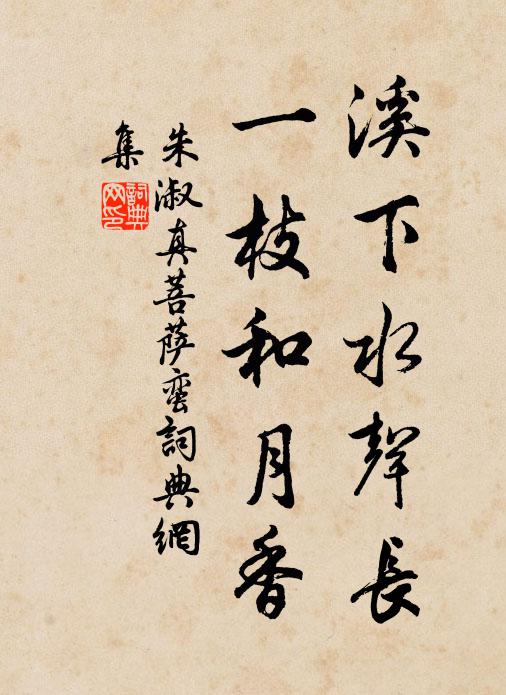 溪下水聲長
一枝和月香
朱淑真菩薩蠻詞典網
集
詞典網印